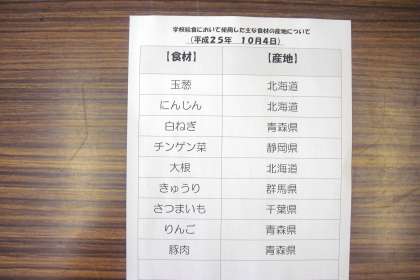 学校給食において使用した主な食材の産地について
（平成２５年　１０月４日）
【食材】　【産地】
玉葱　北海道
にんじん　北海道
白ねぎ　青森県
チンゲン菜　静岡県
大根　北海道
きゅうり　群馬県
さつまいも　千葉県
りんご　青森県
豚肉　青森県